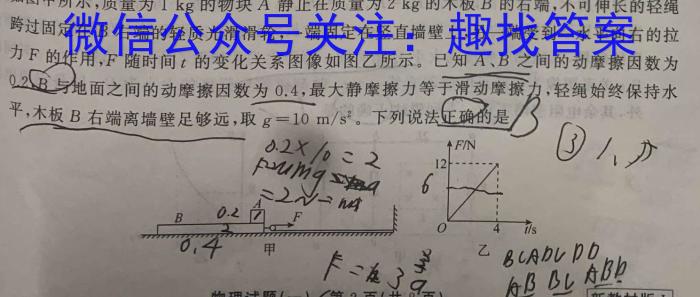 如图甲所示,质量为 1 kg 的物块 A 静止在质量为 2 kg 的木板 B 的右端,不可伸长的轻绳
跨过固定在 B 右端的轻质光滑滑轮,一端固定在竖直墙壁上,另一端受到水平向右的拉
微信公众号关注:趣找答案
力 F 的作用,F 随时间 t 的变化关系图像如图乙所示。已知 A、B 之间的动摩擦因数为
0.2,B 与地面之间的动摩擦因数为 0.4,最大静摩擦力等于滑动摩擦力,轻绳始终保持水
平,木板 B 右端离墙壁足够远,取 g=10 m/s²。下列说法正确的是
B
③
0.2×10=2
F=umg
=2N=
F/N
12
6
O
4
t/s
乙
B
0.2
A
2
F
0.4
甲
F=
3
BCADCDD
AB BC ABD